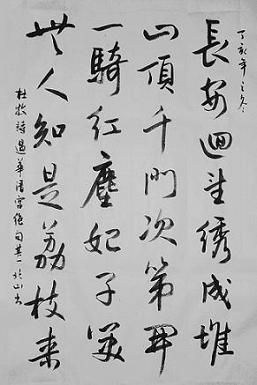 丁亥年之冬
長安迴望绣成堆
山頂千門次第開
一騎红塵妃子笑
無人知是荔枝来
杜牧詩過華清宫绝句其一 山书